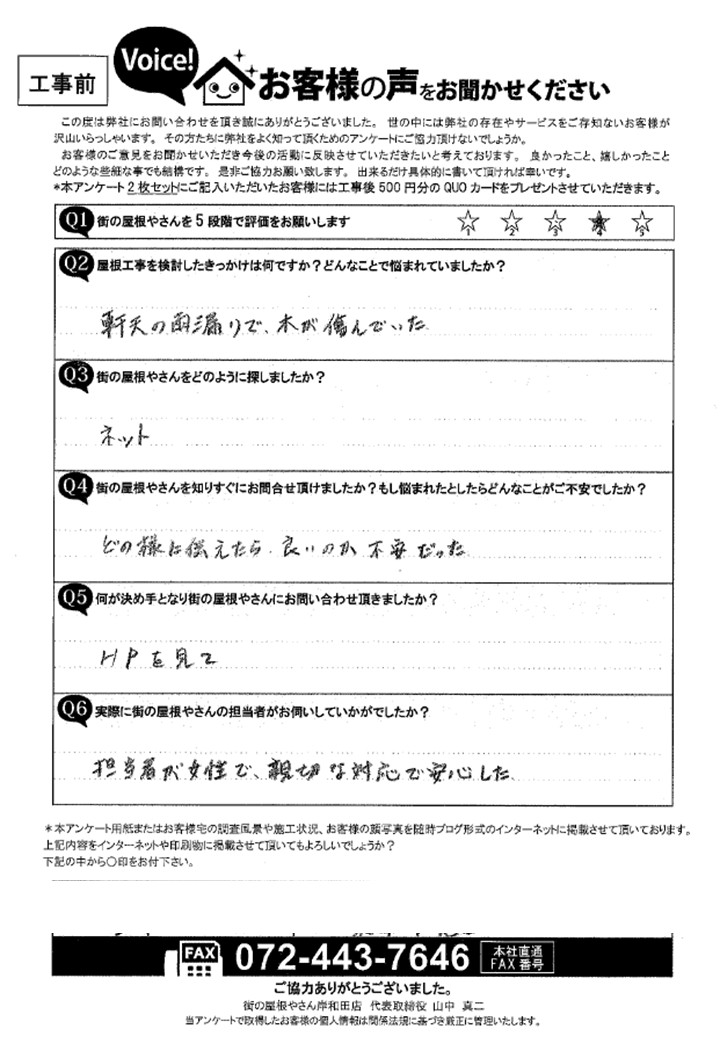 工事前
Voice!
お客様の声をお聞かせください
この度は弊社にお問い合わせを頂き誠にありがとうございました。 世の中には弊社の存在やサービスをご存知ないお客様が
沢山いらっしゃいます。 その方たちに弊社をよく知って頂くためのアンケートにご協力頂けないでしょうか。
お客様のご意見をお聞かせいただき今後の活動に反映させていただきたいと考えております。 良かったこと、嬉しかったこと
どのような些細な事でも結構です。 是非ご協力お願い致します。 出来るだけ具体的に書いて頂ければ幸いです。
*本アンケート2枚セットにご記入いただいたお客様には工事後500円分のQUOカードをプレゼントさせていただきます。
Q1 街の屋根やさんを5段階で評価をお願いします
1 2 3 4 5
Q2 屋根工事を検討したきっかけは何ですか?どんなことで悩まれていましたか?
軒天の雨漏りで、木が傷んでいた
Q3 街の屋根やさんをどのように探しましたか?
ネット
Q4 街の屋根やさんを知りすぐにお問合せ頂けましたか?もし悩まれたとしたらどんなことがご不安でしたか?
どの様に伝えたら良いのか不安だった
Q5 何が決め手となり街の屋根やさんにお問い合わせ頂きましたか?
HPを見て
Q6 実際に街の屋根やさんの担当者がお伺いしていかがでしたか?
担当者が女性で、親切な対応で安心した
*本アンケート用紙またはお客様宅の調査風景や施工状況、お客様の顔写真を随時ブログ形式のインターネットに掲載させて頂いております。
上記内容をインターネットや印刷物に掲載させて頂いてもよろしいでしょうか?
下記の中から○印をお付下さい。
FAX 072-443-7646 本社直通
FAX番号
ご協力ありがとうございました。
街の屋根やさん岸和田店 代表取締役 山中 真二
当アンケートで取得したお客様の個人情報は関係法規に基づき厳正に管理いたします。